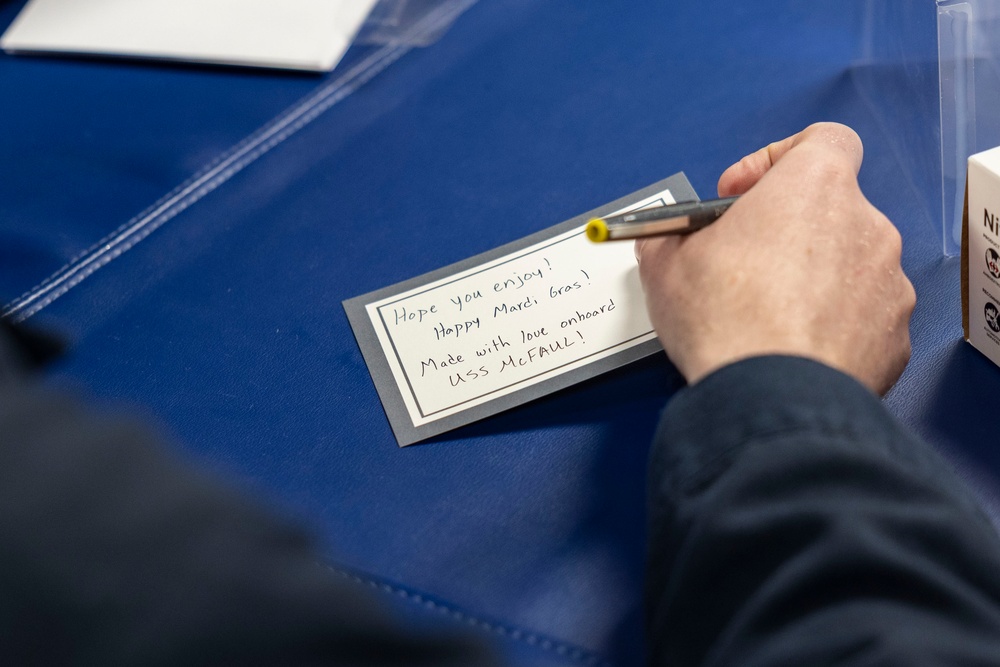 Hope you enjoy!
Happy Mardi Gras!
Made with love onboard
USS McFAUL!
Ni